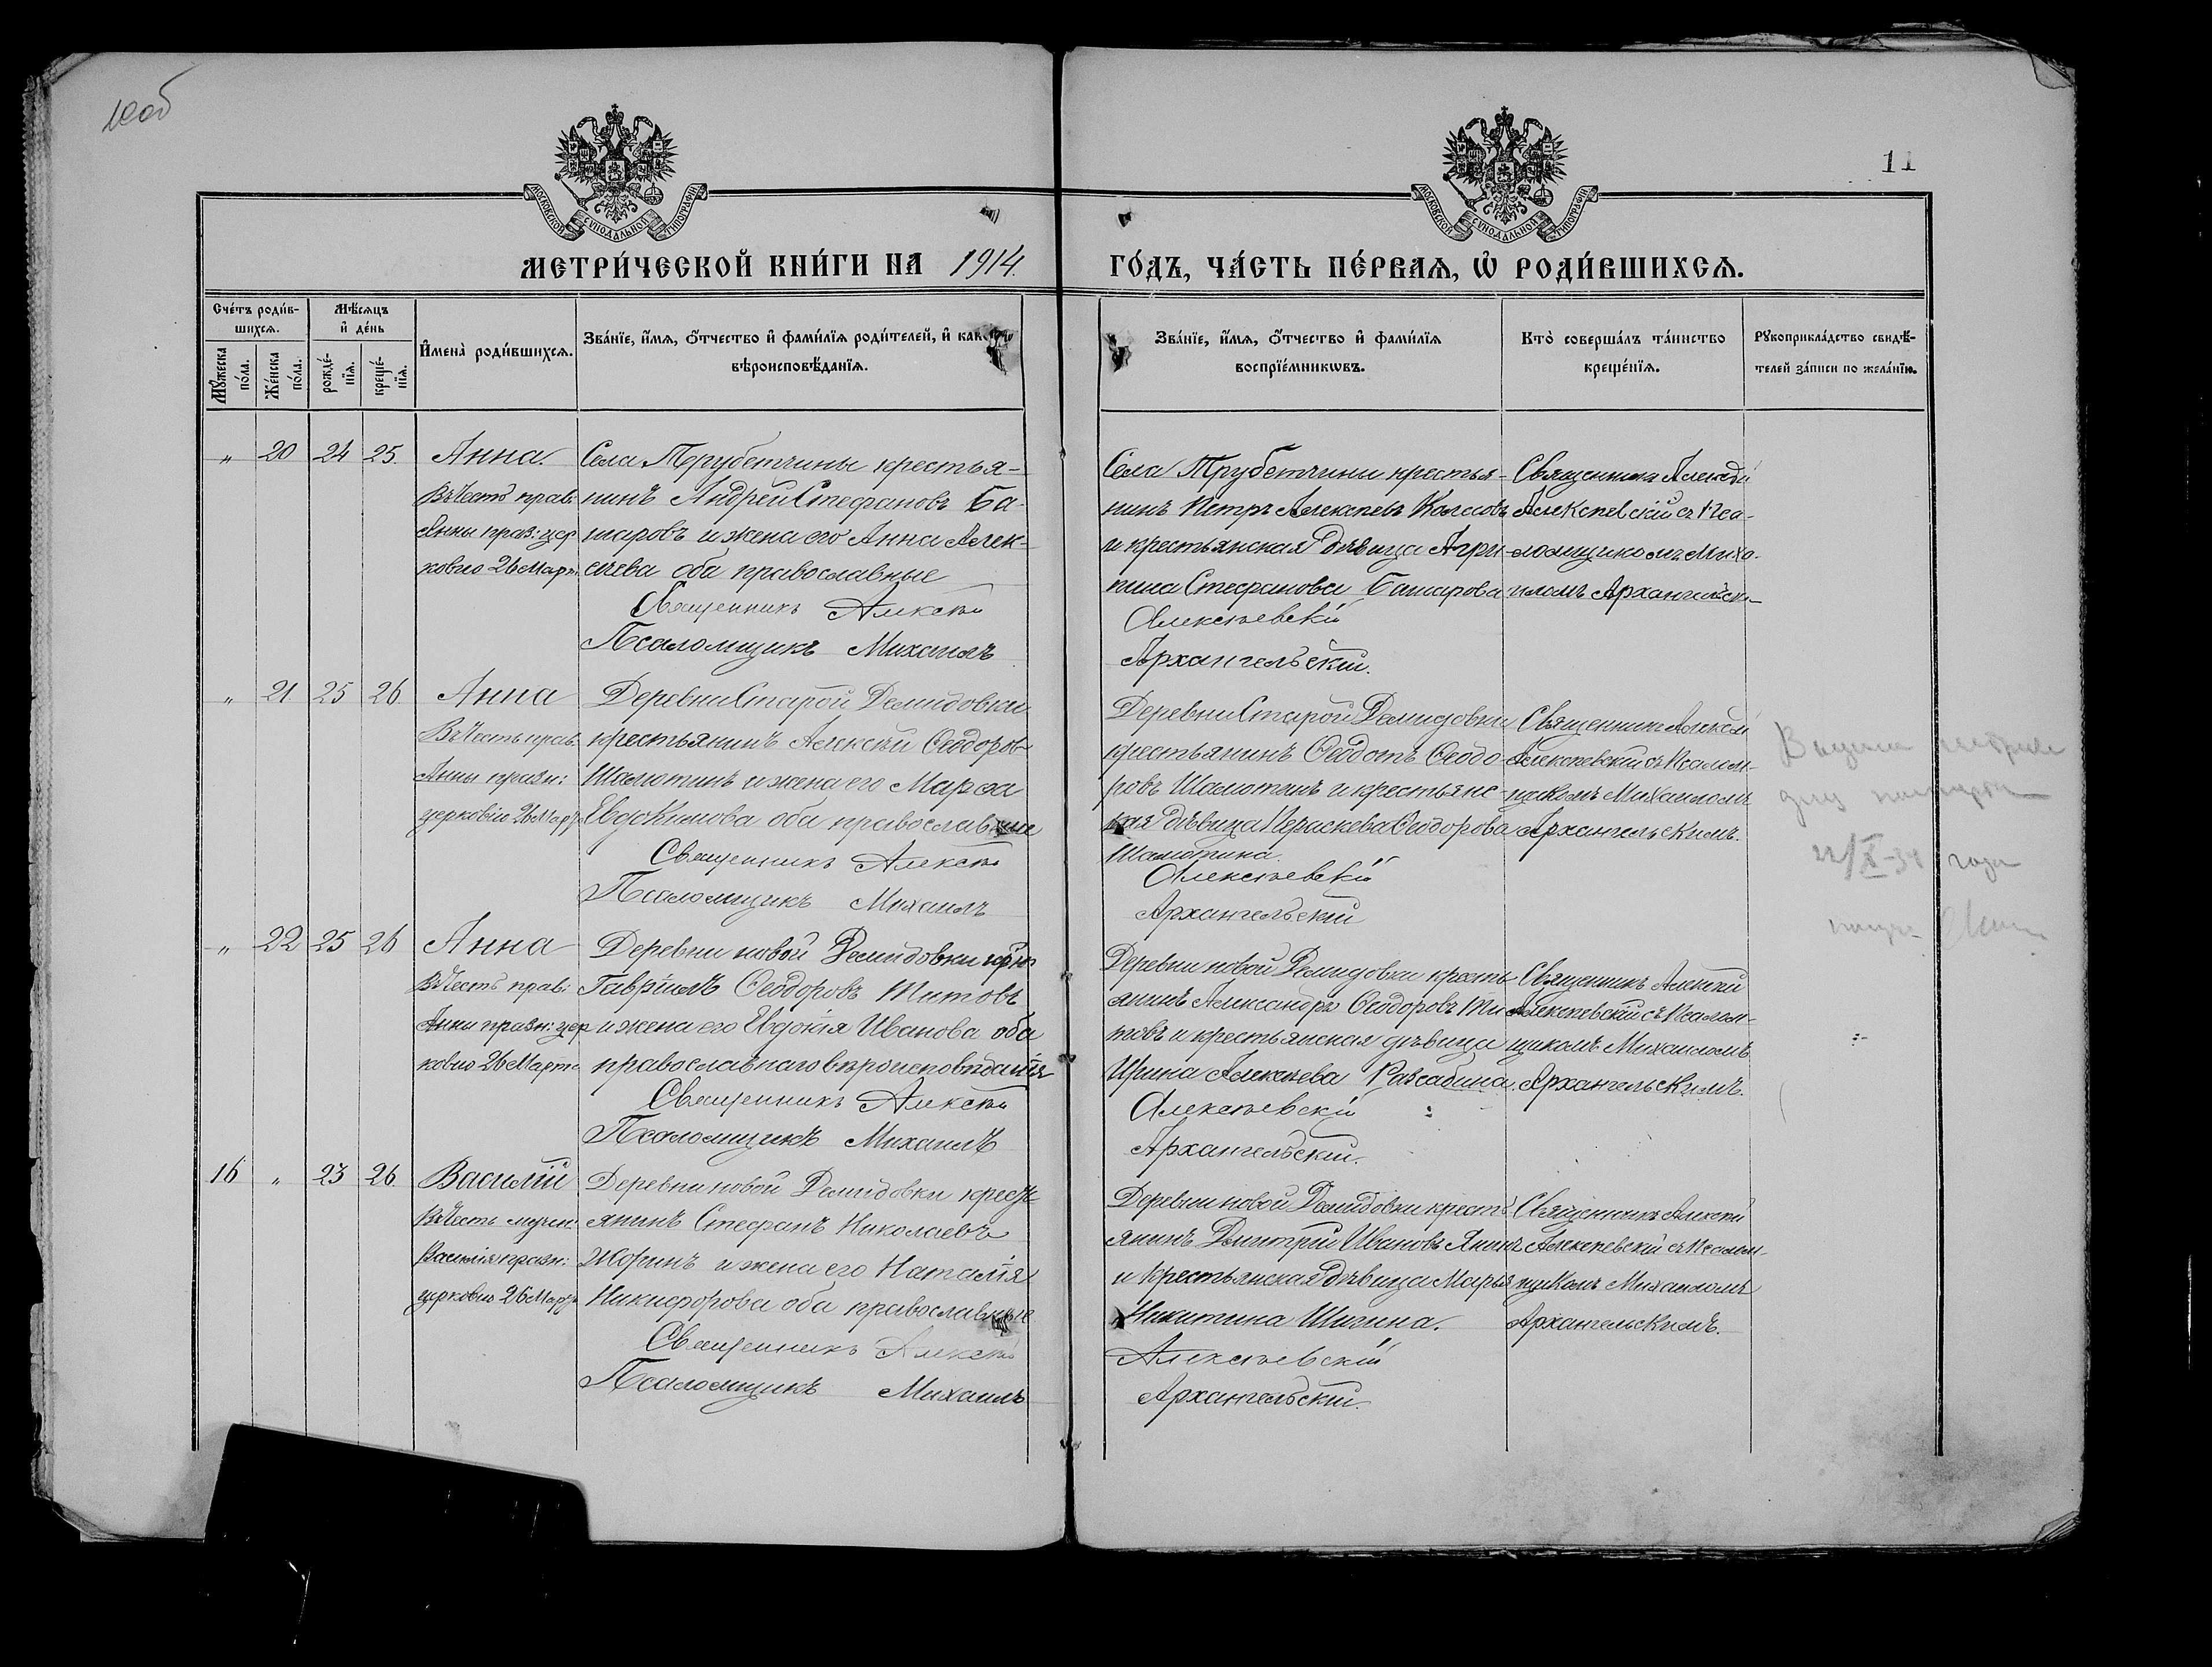 10об
11
МОСКОВСКОЙ СУНОДАЛЬНОЙ ТИПОГРАФІИ
МОСКОВСКОЙ СУНОДАЛЬНОЙ ТИПОГРАФІИ
МЕТРИ́ЧЕСКОЙ КНИ́ГИ НА 1914.
ГО́ДЪ, ЧА́СТЬ ПЕ́РВАѦ, Ѡ҆ РОДИ́ВШИХСѦ.
Сче́тъ роди́в-
шихсѧ.
Мꙋ́жеска по́ла.
Же́нска по́ла.
Мѣ́сѧцъ
и҆ де́нь
рожде́-
нїѧ.
креще́-
нїѧ.
И҆мена̀ роди́вшихсѧ.
Зва́нїе, и҆́мѧ, ѻ҆́тчество и҆ фами́лїѧ роди́телей, и҆ како́гѡ
вѣроисповѣ́данїѧ.
Зва́нїе, и҆́мѧ, ѻ҆́тчество и҆ фами́лїѧ
воспрїе́мникѡвъ.
Кто̀ соверша́лъ та́инство
креще́нїѧ.
Рꙋкоприкла́дство свидѣ́-
телей за́писи по жела́нїю.
„ 20 24 25. Анна.
Въ честь прав:
Анны праз: цер
ковію 26 Март.
Села Трубетчины крестья-
нинъ Андрей Стефановъ Ба-
шаровъ и жена его Анна Алек-
сѣева оба православные
Священникъ Алексѣй
Псаломщикъ Михаилъ
Села Трубетчины крестья-
нинъ Петръ Алексѣевъ Колсовъ
и крестьянская дѣвица Агри-
пина Стефанова Башарова
Алексѣевскій
Архангельскій.
Священникъ Алексѣй
Алексѣевскій съ Пса-
ломщикомъ Миха-
иломъ Архангельск-
„ 21 25 26. Анна
Въ честь прав:
Анны празн:
церковію 26 Мар.
Деревни Старой Демидовки
крестьянинъ Алексѣй Ѳеодоров
Шалютинъ и жена его Марѳа
Евдокимова оба православные
Священникъ Алексѣй
Псаломщикъ Михаилъ
Деревни Старой Демидовки
крестьянинъ Ѳеодотъ Ѳеодо-
ровъ Шалютинъ и крестьянс-
кая дѣвица Пераскева Ѳеодорова
Шалютина.
Алексѣевскій
Архангельскій
Священникъ Алексѣй
Алексѣевскій съ Псалом-
щикомъ Михаиломъ
Архангельскимъ.
22/X-34 года
„ 22 25 26 Анна
Въ честь прав:
Анны празн: цер
ковію 26 Марта
Деревни новой Демидовки кр-нъ
Гавріилъ Ѳеодоровъ Титовъ
и жена его Евдокія Иванова оба
православнаго вѣроисповѣданія
Священникъ Алексѣй
Псаломщикъ Михаилъ
Деревни новой Демидовки кресть
янинъ Александръ Ѳеодоровъ Ти
товъ и крестьянская дѣвица
Ирина Алексѣева Разсадина.
Алексѣевскій
Архангельскій.
Священникъ Алексѣй
Алексѣевскій съ Псалом-
щикомъ Михаиломъ
Архангельскимъ.
16 „ 23 26. Василій
Въ честь мучен.
Василія празн:
церковію 26 Мар.
Деревни новой Демидовки крест
янинъ Стефанъ Николаевъ
Жоринъ и жена его Наталія
Никифорова оба православные
Священникъ Алексѣй
Псаломщикъ Михаилъ
Деревни новой Демидовки крест
янинъ Дмитрій Ивановъ Янинъ
и крестьянская дѣвица Марья
Никитина Шигина.
Алексѣевскій
Архангельскій.
Священникъ Алексѣй
Алексѣевскій съ Псалом-
щикомъ Михаиломъ
Архангельскимъ.